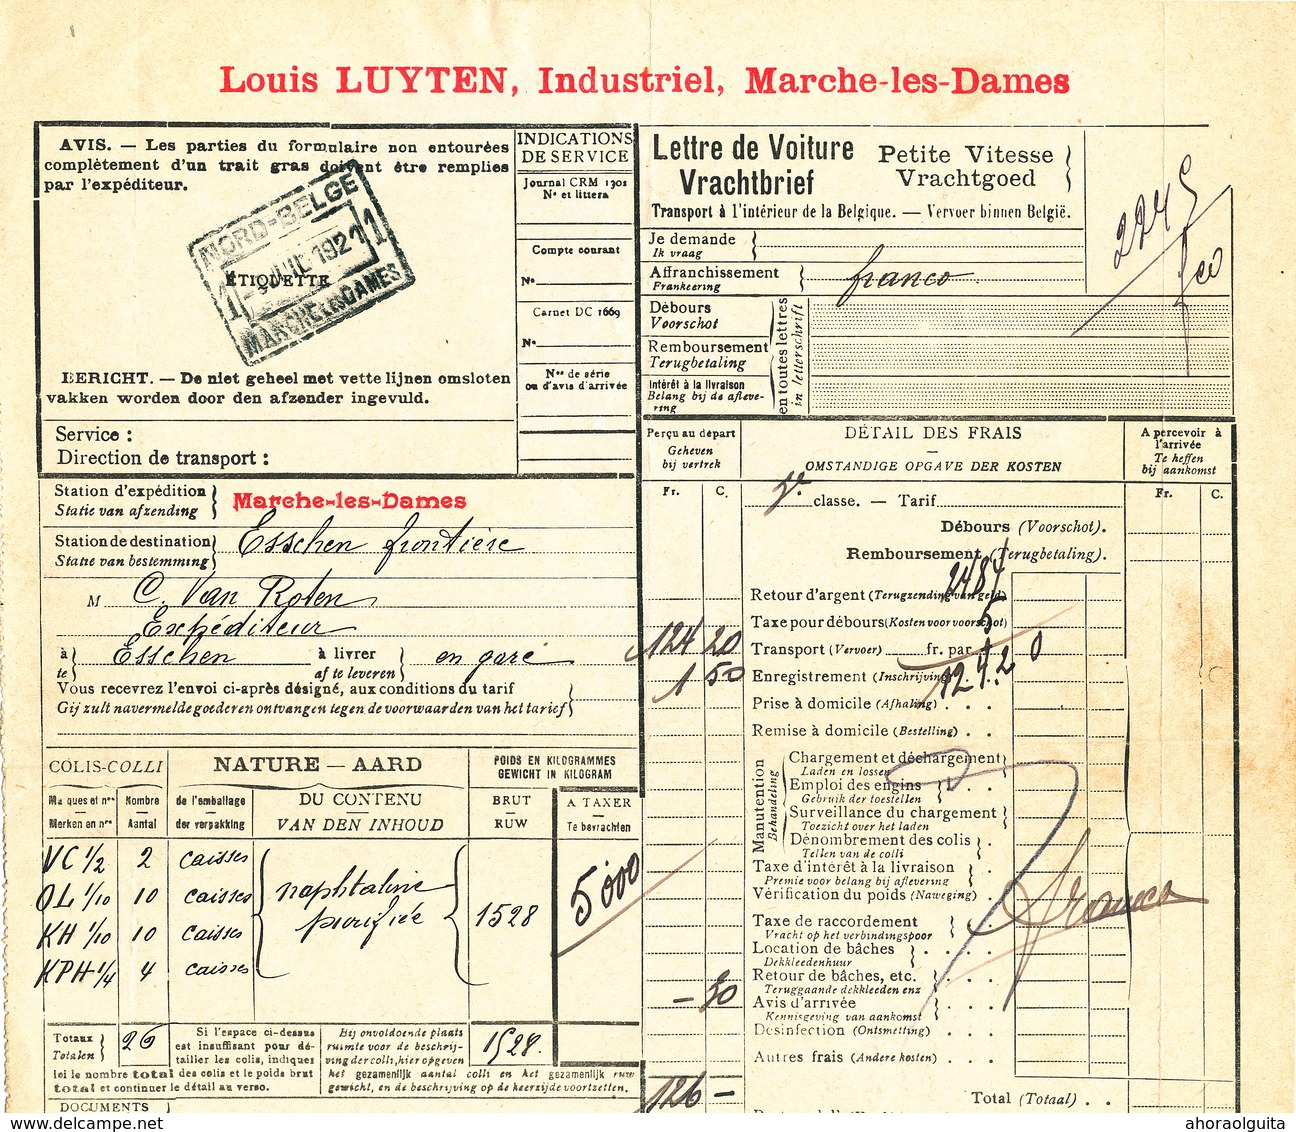 Louis LUYTEN, Industriel, Marche-les-Dames
AVIS. — Les parties du formulaire non entourées
complètement d'un trait gras doivent être remplies
par l'expéditeur.
NORD-BELGE
1 - JUIL 1921 1
ÉTIQUETTE
MARCHE LES DAMES
BERICHT. — De niet geheel met vette lijnen omsloten
vakken worden door den afzender ingevuld.
Service :
Direction de transport :
INDICATIONS
DE SERVICE
Journal CRM 1301
Nº et littera
Compte courant
Nº
Carnet DC 1669
Nº
Nºs de série
ou d'avis d'arrivée
Lettre de Voiture
Vrachtbrief
Petite Vitesse
Vrachtgoed
Transport à l'intérieur de la Belgique. — Vervoer binnen België.
Je demande
Ik vraag
Affranchissement
Prankeering
franco
Débours
Voorschot
Remboursement
Terugbetaling
Intérêt à la livraison
Belang bij de aflevering
en toutes lettres
in letterschrift
Station d'expédition
Statie van afzending
Marche-les-Dames
Station de destination
Statie van bestemming
Esschen frontière
M C. Van Roten
Expéditeur
à
te
Esschen
à livrer
af te leveren
en gare
Vous recevrez l'envoi ci-après désigné, aux conditions du tarif
Gij zult navermelde goederen ontvangen tegen de voorwaarden van het tarief
COLIS-COLLI
NATURE — AARD
POIDS EN KILOGRAMMES
GEWICHT IN KILOGRAM
Marques et nºs
Merken en nrs
Nombre
Aantal
de l'emballage
der verpakking
DU CONTENU
VAN DEN INHOUD
BRUT
RUW
A TAXER
Te bevrachten
VC 1/2 2 caisses
OL 1/10 10 caisses
KH 1/10 10 caisses
KPH 1/4 4 caisses
naphtaline
purifiée
1528
5000
Totaux
Totalen
26
Si l'espace ci-dessus
est insuffisant pour détailler
les colis, indiquer
ici le nombre total des colis et le poids brut
total et continuer le détail au verso.
Bij onvoldoende plaats
ruimte voor de beschrijving
der colli, hier opgeven
het gezamenlijk aantal colli en het gezamenlijk ruw
gewicht, en de beschrijving op de keerzijde voortzetten.
1528.
DOCUMENTS
Perçu au départ
Geheven
bij vertrek
Fr. C.
DÉTAIL DES FRAIS
OMSTANDIGE OPGAVE DER KOSTEN
A percevoir à
l'arrivée
Te heffen
bij aankomst
Fr. C.
classe. — Tarif
Débours (Voorschot).
Remboursement (Terugbetaling).
Retour d'argent (Terugzending van geld)
Taxe pour débours (Kosten voor voorschot)
5
124 20
Transport (Vervoer) fr. par
1 50
Enregistrement (Inschrijving)
Prise à domicile (Afhaling)
Remise à domicile (Bestelling)
Manutention
Behandeling
Chargement et déchargement
Laden en lossen
Emploi des engins
Gebruik der toestellen
Surveillance du chargement
Toezicht over het laden
Dénombrement des colis
Tellen van de colli
Taxe d'intérêt à la livraison
Premie voor belang bij aflevering
Vérification du poids (Naweging)
Taxe de raccordement
Vracht op het verbindingspoor
franco
Location de bâches
Dekkleedenhuur
Retour de bâches, etc.
Teruggaande dekkleeden enz
— 30
Avis d'arrivée
Kennisgeving van aankomst
Désinfection (Ontsmetting)
Autres frais (Andere kosten)
126 —
Total (Totaal)
www.delcampe.net
ahoraolguita